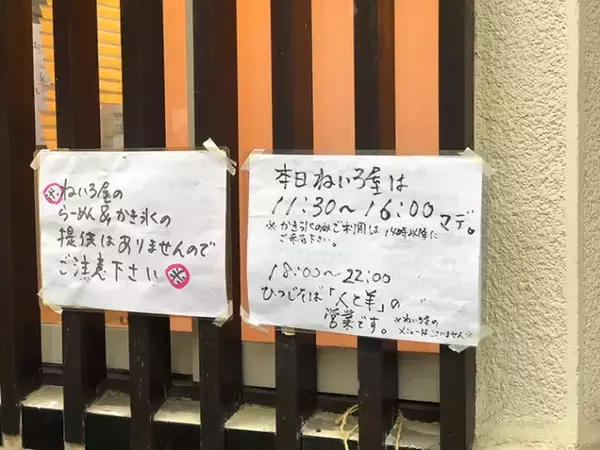 ※ねいろ屋の
らーめん&かき氷の
提供はありませんので
ご注意下さい※
本日ねいろ屋は
11:30〜16:00マデ。
※かき氷のみご利用は14時以降に
ご来店下さい。
18:00〜22:00
ひつじそば「人と羊」の
営業です。※ねいろ屋の
メニューはございません※